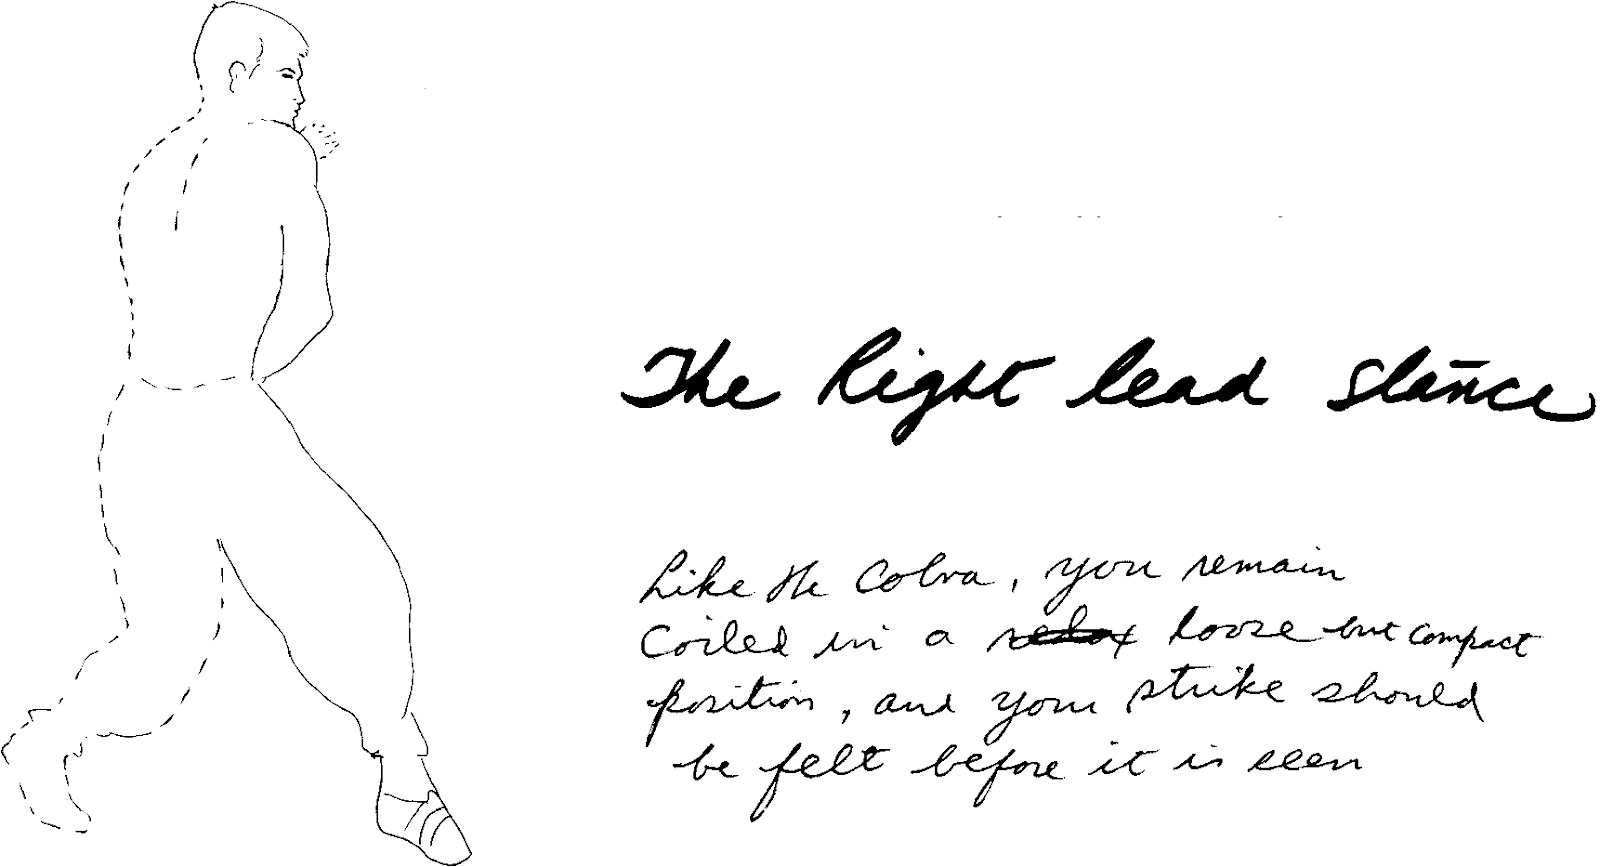 The Right lead stance
Like the Cobra, you remain
Coiled in a loose but compact
position, and your strike should
be felt before it is seen